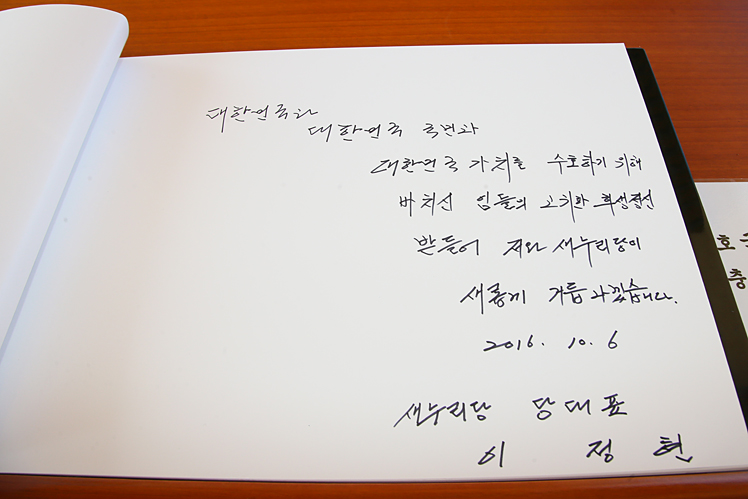 대한민국과
대한민국 국민과
대한민국 가치를 수호하기 위해
바치신 임들의 고귀한 희생정신
받들어 저와 새누리당이
새롭게 거듭나겠습니다.
2016. 10. 6
새누리당 당대표
이 정 현
호국
충